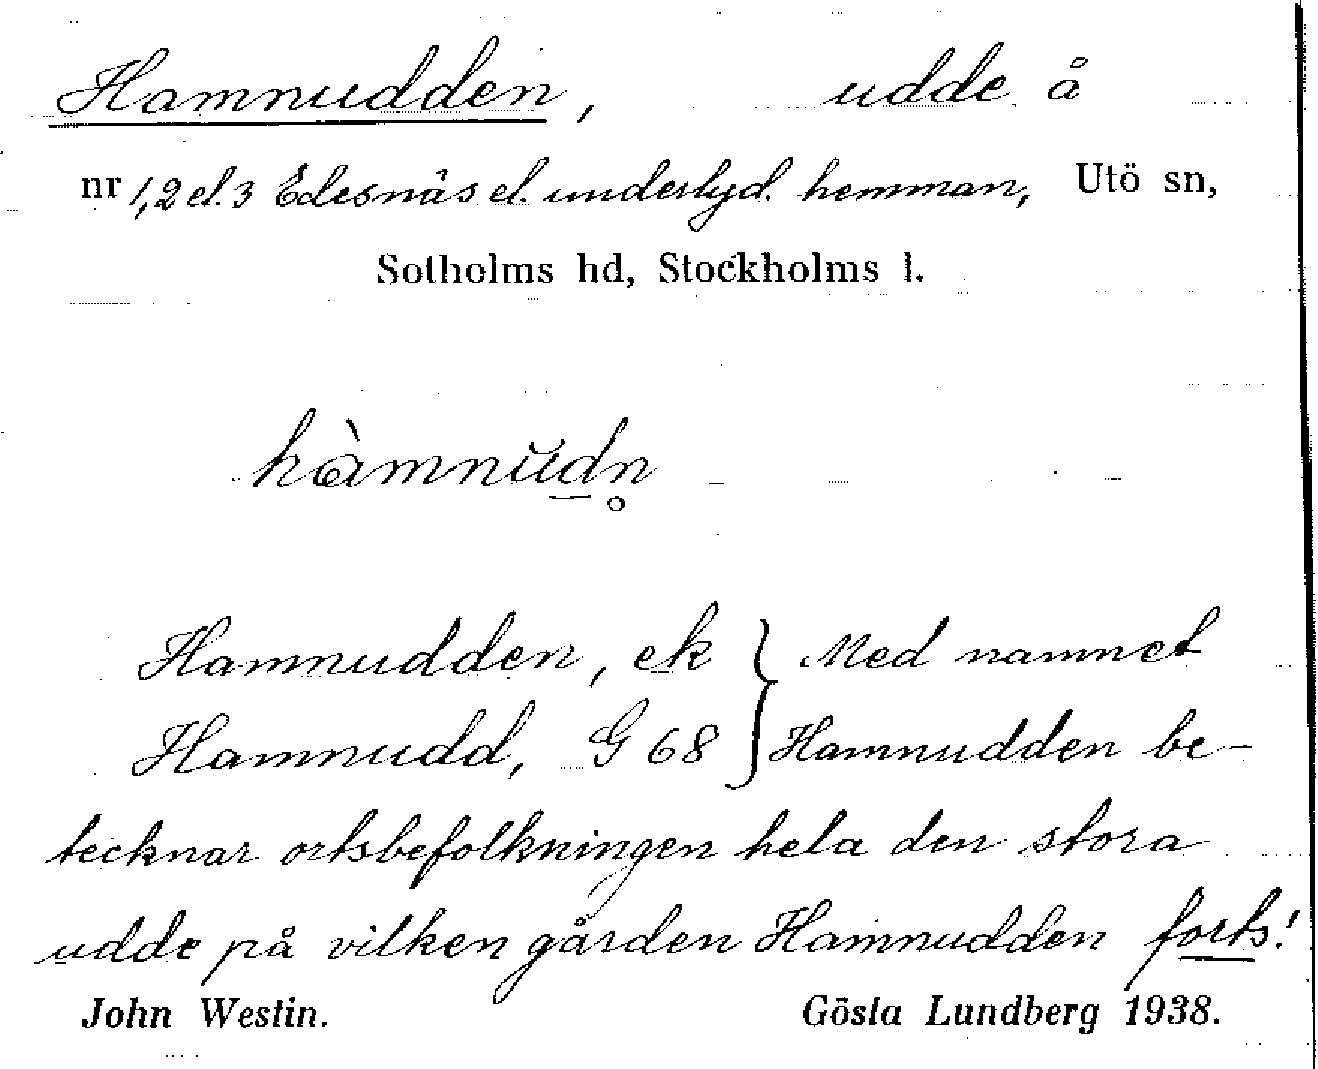 Hamnudden, udde å
nr 1, 2 el. 3 Edesnäs el. underlyd. hemman, Utö sn,
Sotholms hd, Stockholms l.
hàmnŭdn̥
Hamnudden, ek } Med namnet
Hamnudd, G 68 } Hamnudden be-
tecknar ortsbefolkningen hela den stora
udde på vilken gården Hamnudden forts!
John Westin. Gösta Lundberg 1938.